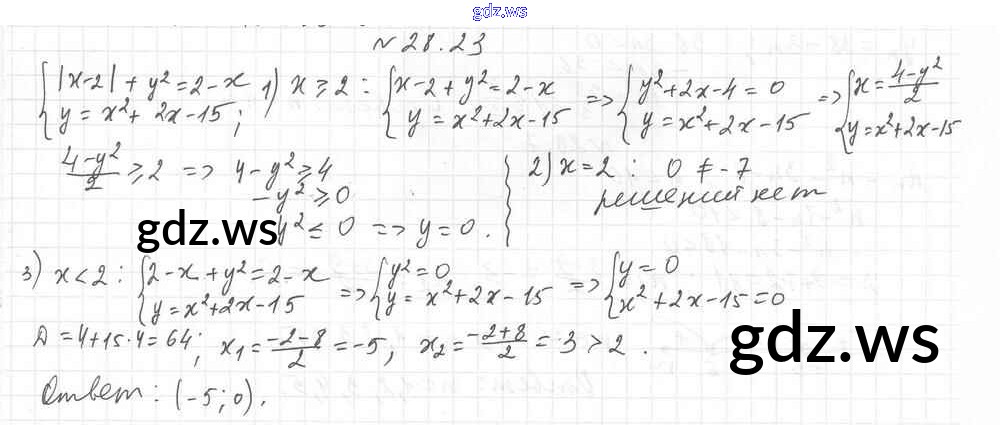 gdz.ws
№ 28.23
{|x-2| + y² = 2-x
y = x² + 2x - 15;
1) x ≥ 2 : {x-2 + y² = 2-x
y = x² + 2x - 15
=> {y² + 2x - 4 = 0
y = x² + 2x - 15
=> {x = (4-y²)/2
y = x² + 2x - 15
(4-y²)/2 ≥ 2 => 4 - y² ≥ 4
- y² ≥ 0
y² ≤ 0 => y = 0.
2) x = 2 : 0 ≠ -7
решений нет
gdz.ws
3) x < 2 : {2 - x + y² = 2 - x
y = x² + 2x - 15
=> {y² = 0
y = x² + 2x - 15
=> {y = 0
x² + 2x - 15 = 0
D = 4 + 15·4 = 64; x₁ = (-2-8)/2 = -5; x₂ = (-2+8)/2 = 3 > 2.
gdz.ws
Ответ: (-5; 0).